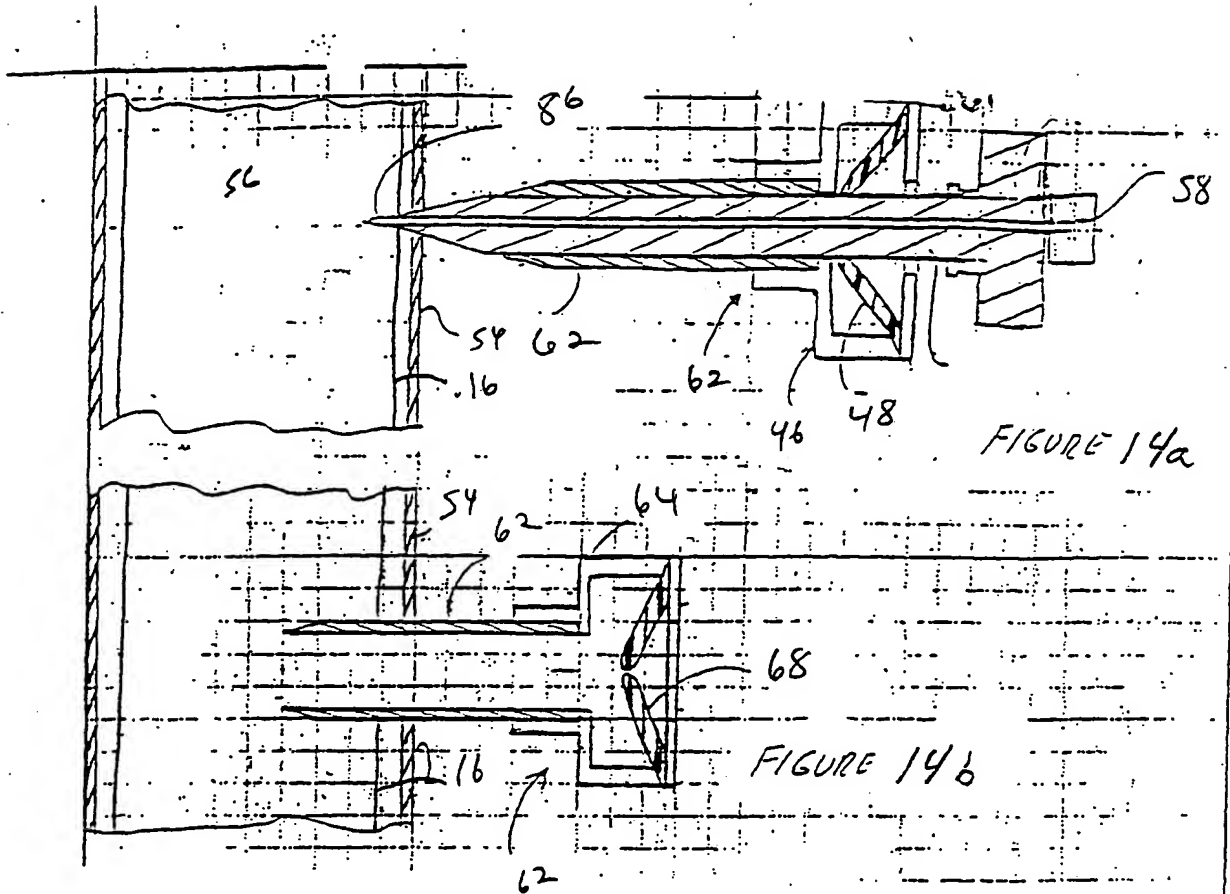 86
56
58
54
62
16
62
46
48
FIGURE 14a
54
62
64
68
16
FIGURE 14b
62